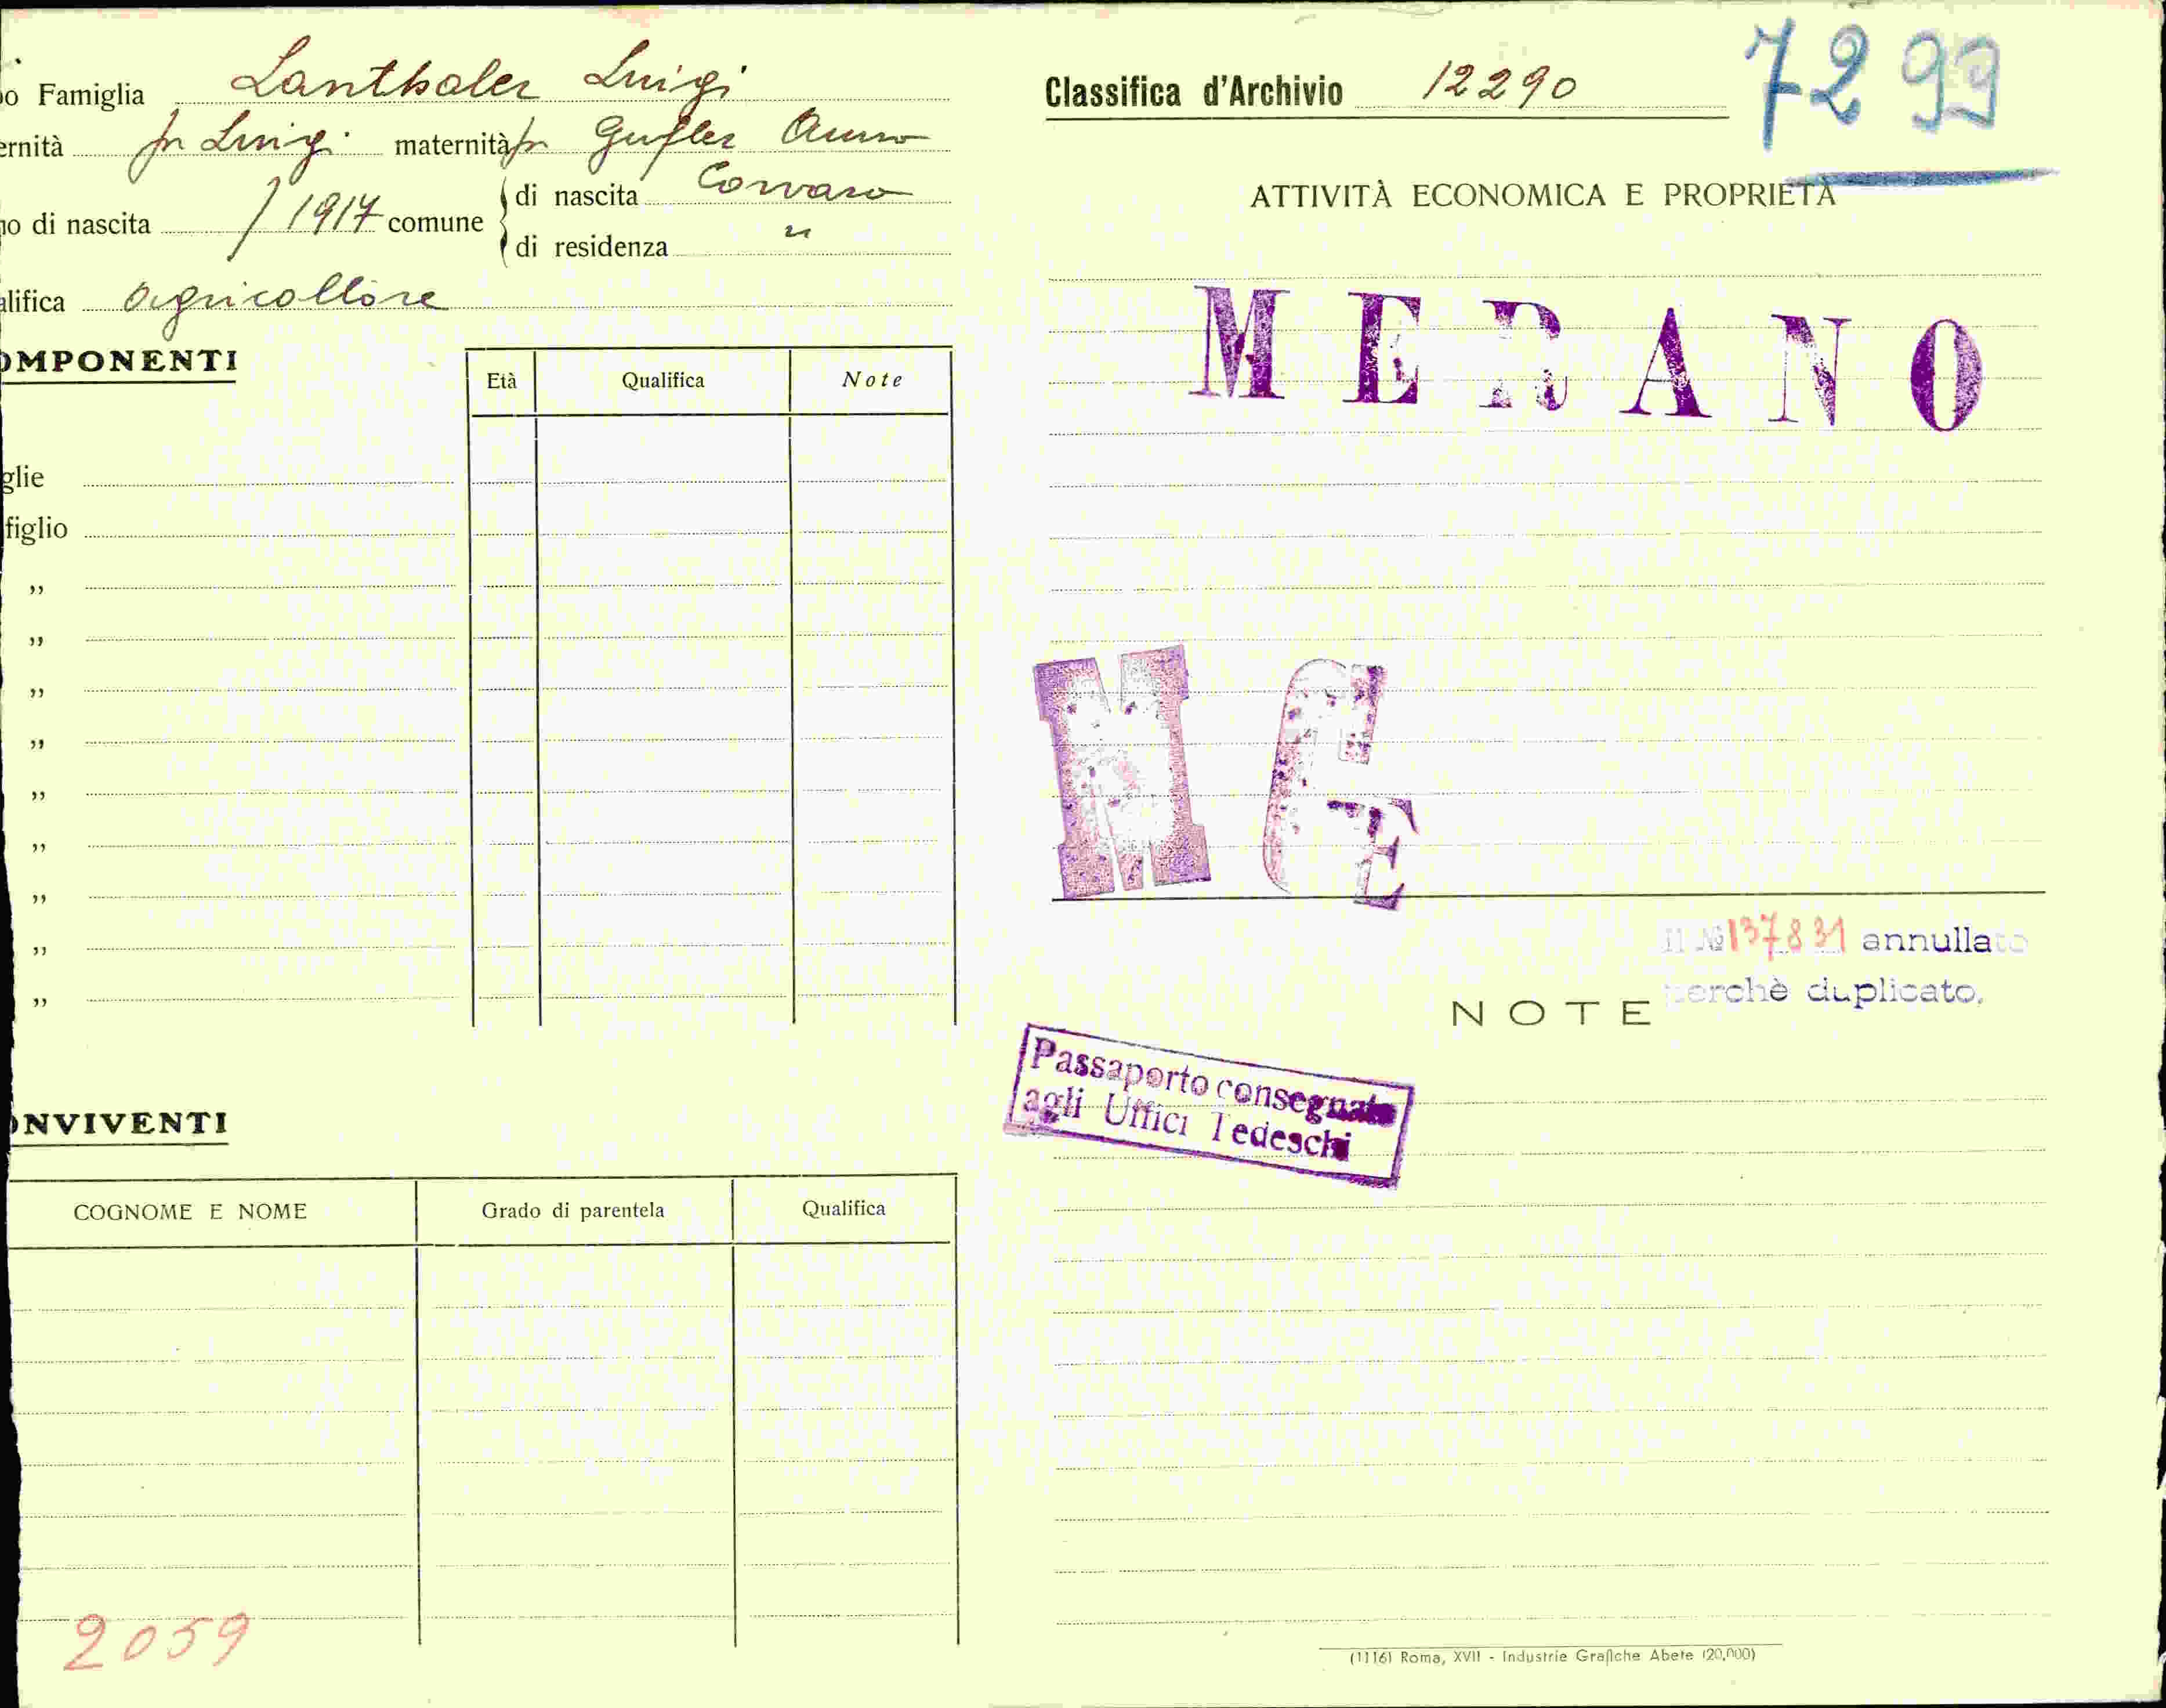 o Famiglia Lanthaler Luigi
ernità fu Luigi maternità fu Gufler Anna
no di nascita / 1917 comune di nascita Corvara
di residenza "
alifica agricoltore
OMPONENTI
Età Qualifica Note
glie
figlio
"
"
"
"
"
"
"
"
"
ONVIVENTI
COGNOME E NOME Grado di parentela Qualifica
2059
Classifica d'Archivio 12290
7299
ATTIVITÀ ECONOMICA E PROPRIETÀ
MERANO
Il No 137831 annullato
perchè duplicato.
NOTE
Passaporto consegnato
agli Uffici Tedeschi
(1116) Roma, XVII - Industrie Grafiche Abete (20,000)